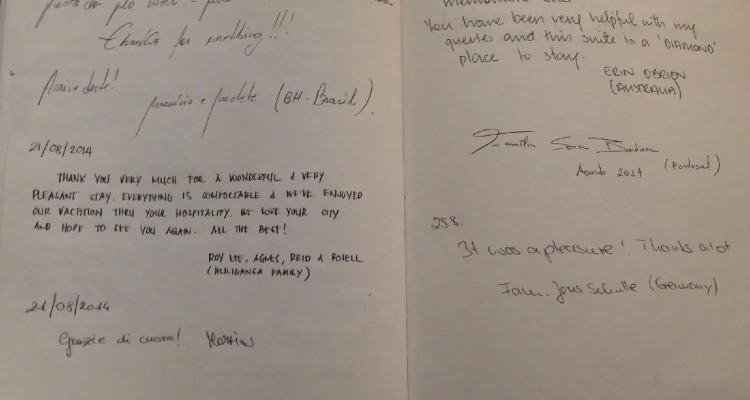 Thanks for everything!!!
Arrivederte!
(BH-Brasil)
21/08/2014
THANK YOU VERY MUCH FOR A WONDERFUL & VERY
PLEASANT STAY. EVERYTHING IS COMFORTABLE & WE'VE ENJOYED
OUR VACATION THRU YOUR HOSPITALITY. WE LOVE YOUR CITY
AND HOPE TO SEE YOU AGAIN.. ALL THE BEST!
ROY LEE, AGNES, REID &
FAMILY)
21/08/2014
Grazie di cuore!
You have been very helpful with my
queries and this suite is a 'DIAMOND'
place to stay.
ERIN OBRIEN
(AUSTRALIA)
2014 (Portugal)
25.8.
It was a pleasure! Thanks a lot
Fam. Jens Schulle (Germany)